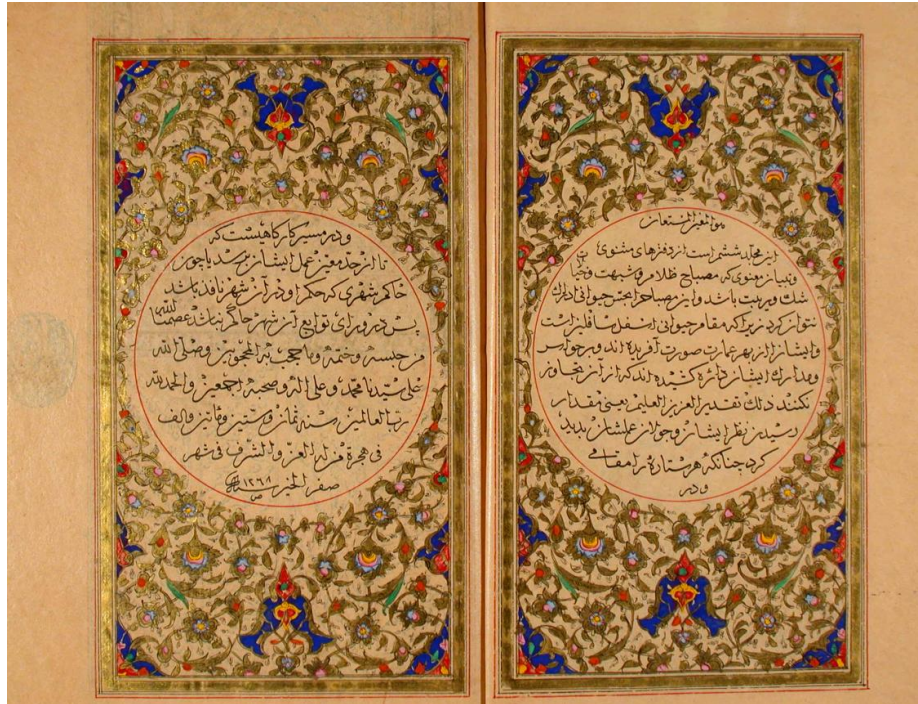 هو المعین المستعان
این مجلد ششمی است از دفترهای مثنوی
و تبیان معنوی که مصباح ظلام و شبهت و خیالات
شک و ریبت باشد و این مصباح را بحس حیوانی ادراک
نتوان کرد زیرا که مقام حیوانی اسفل سافلین است
و ایشان را از بهر عمارت صورت آفریده اند و بر حواس
و مدارک ایشان دائره کشیده اند که از آن تجاوز
نکنند ذلک تقدیر العزیز العلیم یعنی مقدار
رسیدن نظر ایشان و جولان عملشان پدید
کرد چنانکه هر ستاره را مقامی
و در
و در مسیر کارگاهیست که
تا از حد معین عمل ایشان برسد یا چون
حاکم شهری که حکم او در آن شهر نافذ باشد
پس در ورای توابع آن شهر حاکم نباشد عصمنا الله
من حبسه و ختمه و ما حجب به المحجوبین وصلی الله
علی سیدنا محمد وعلی اله وصحبه اجمعین والحمد لله
رب العالمین سنه ثمان وستین ومأتین والف
فی هجرة من له العز والشرف فی شهر
صفر الخیر سنه ۱۲۶۸